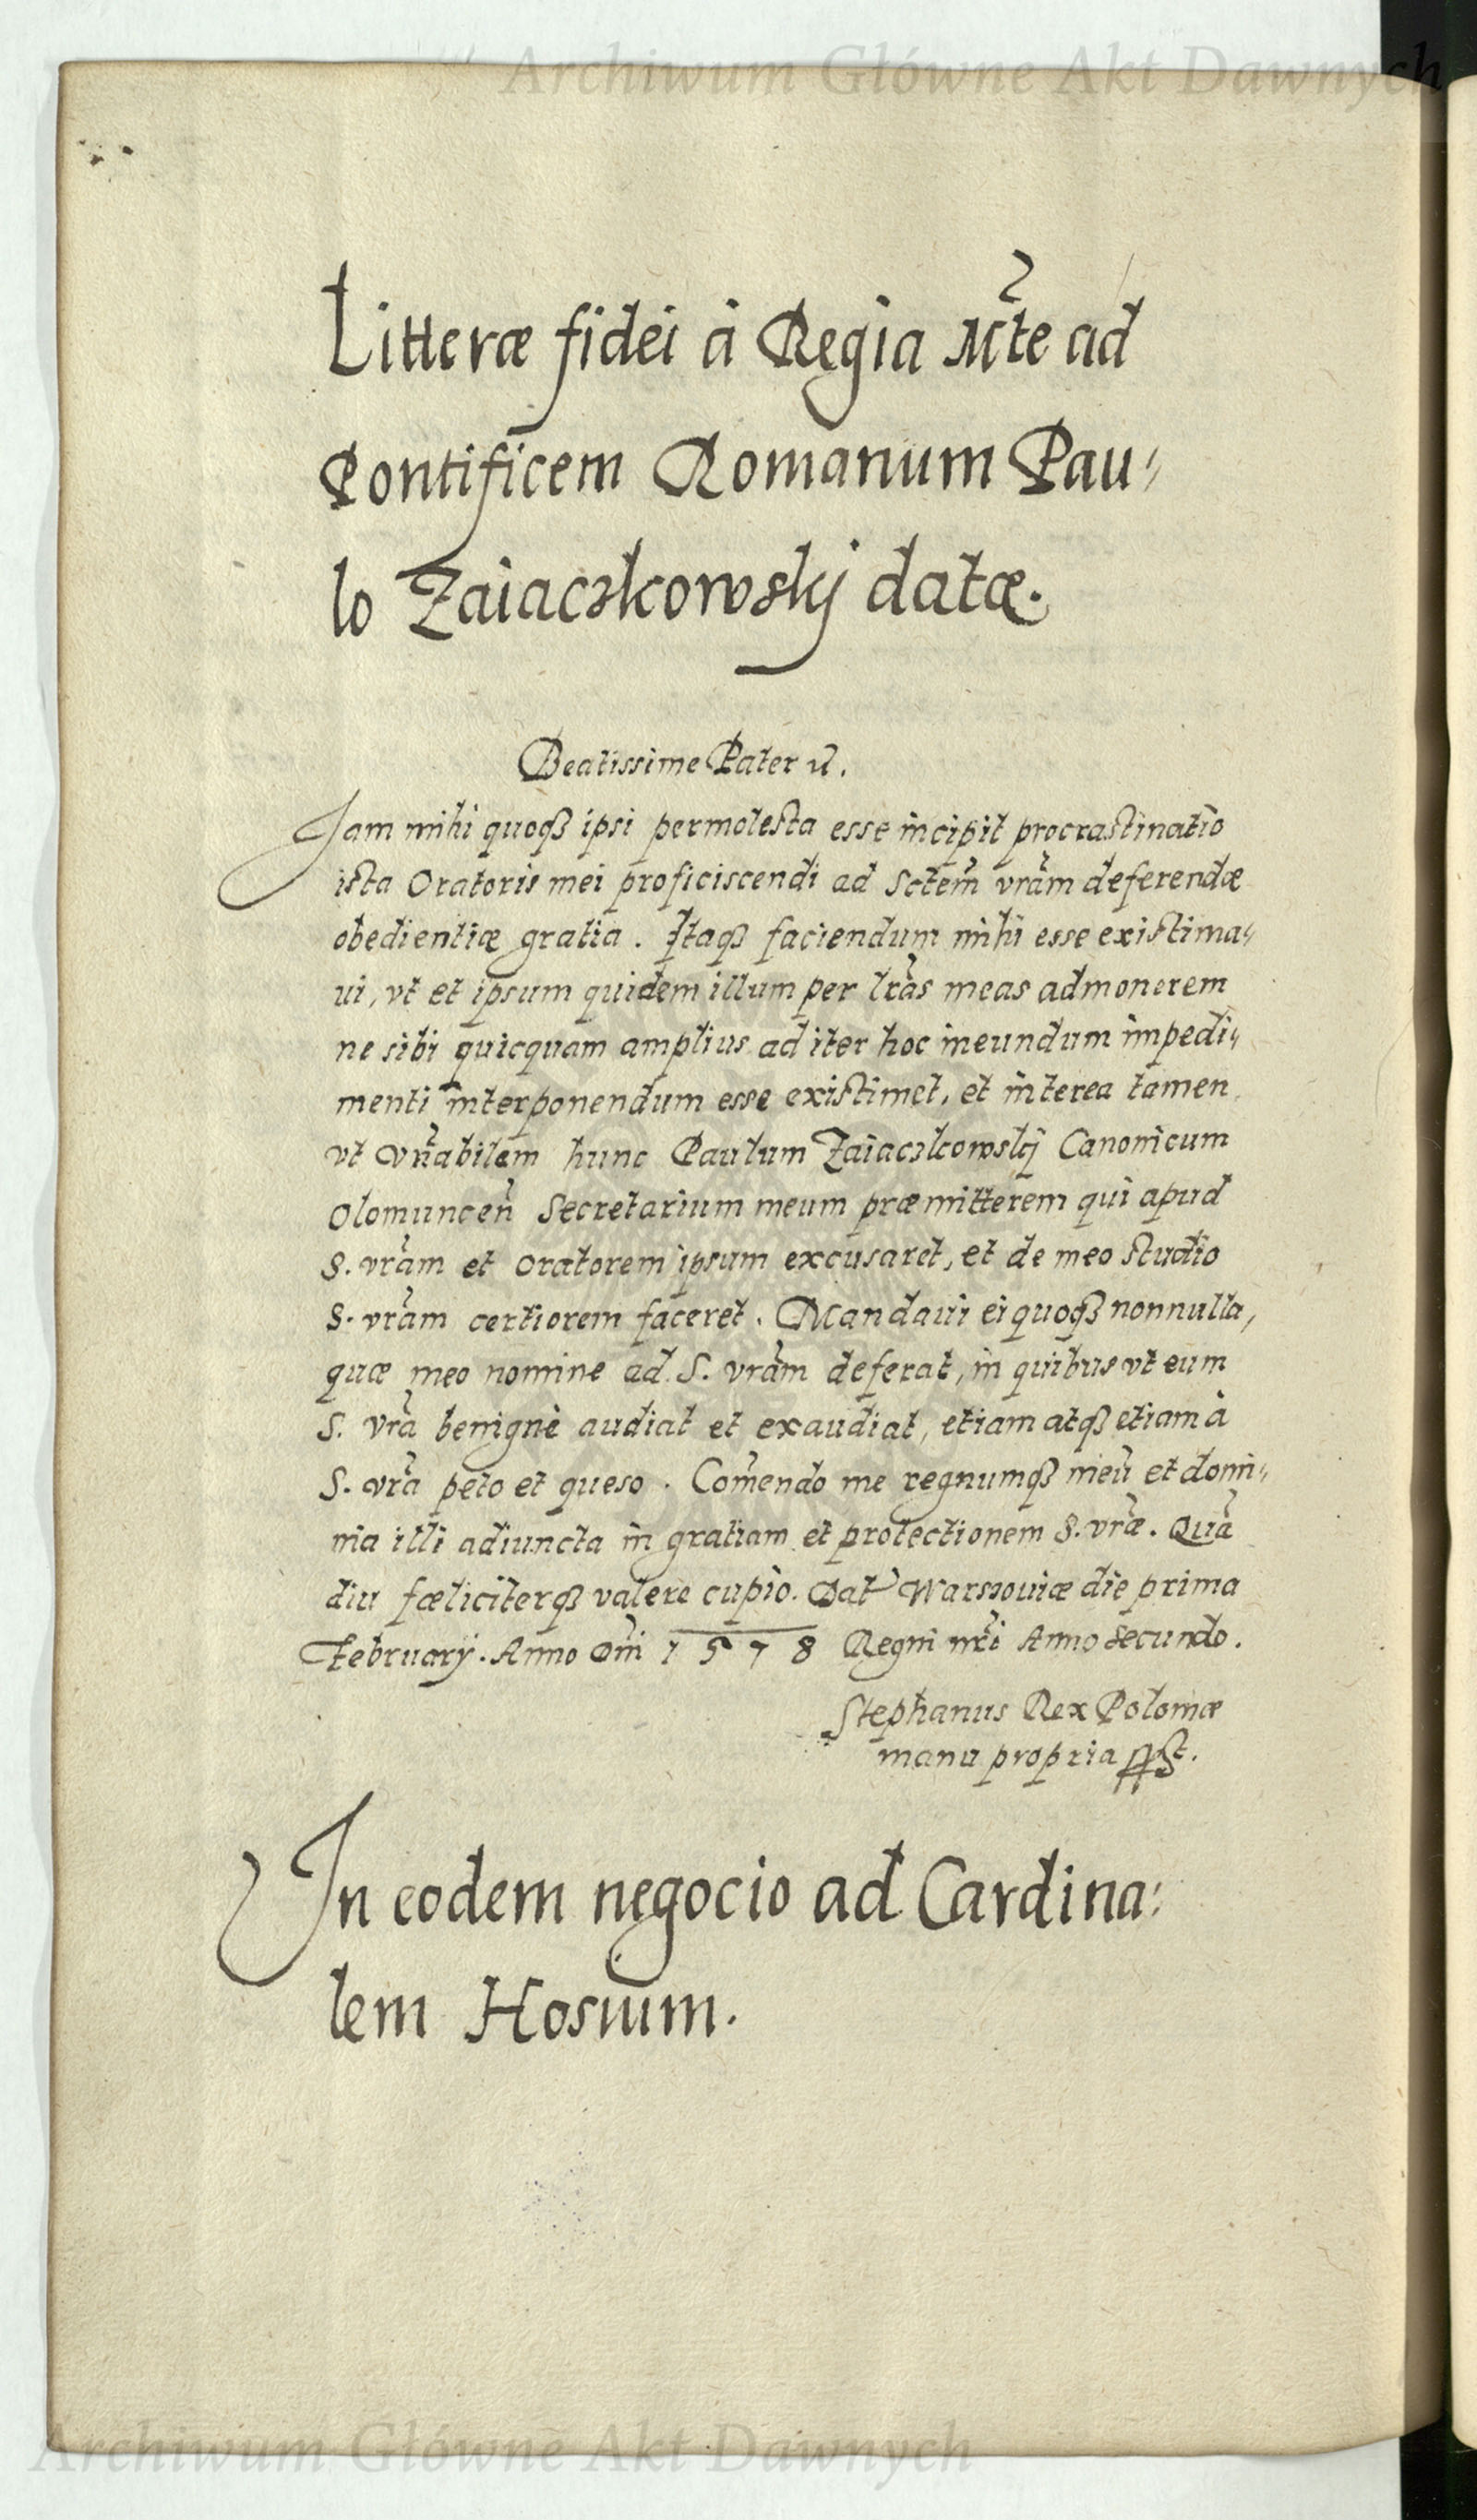 Archiwum Główne Akt Dawnych
Litteræ fidei à Regia Mte ad
Pontificem Romanum Pau-
lo Zaiaczkowskj datæ.
Beatissime Pater
Jam mihi quoqȝ ipsi permolesta esse incipit procrastinatio
ista Oratoris mei proficiscendi ad Sctem vram deferendæ
obedientiæ gratia. Itaqȝ faciendum mihi esse existima-
ui, vt et ipsum quidem illum per lras meas admonerem
ne sibi quicquam amplius ad iter hoc ineundum impedi-
menti interponendum esse existimet, et interea tamen
vt Vnabilem hunc Paulum Zaiaczkowskj Canonicum
Olomuncen Secretarium meum præmitterem qui apud
S. vram et Oratorem ipsum excusaret, et de meo studio
S. vram certiorem faceret. Mandaui ei quoqȝ nonnulla,
quæ meo nomine ad S. vram deferat, in quibus vt eum
S. Vra benignè audiat et exaudiat, etiam atqȝ etiam à
S. vra peto et queso. Comendo me regnumqȝ meū et domi-
nia illi adiuncta in gratiam et protectionem S. vræ. Quā
diu fæliciterqȝ valere cupio. Dat Warszouiæ die prima
February. Anno Dni 1578 Regni nri Anno Secundo.
Stephanus Rex Poloniæ
manu propria
In eodem negocio ad Cardina:
lem Hosium.
Archiwum Główne Akt Dawnych